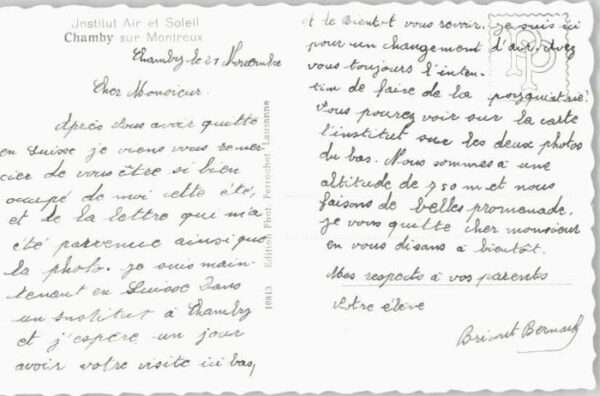 Institut Air et Soleil
Chamby sur Montreux
Chamby le 21 Novembre
Cher Monsieur.
Après vous avoir quitté
en Suisse je viens vous remer-
cier de vous être si bien
occupé de moi cette été,
et de la lettre qui m'a
été parvenue ainsi que
la photo. Je suis main-
tenant en Suisse dans
un institut à Chamby
et j'espère un jour
avoir votre visite ici bas,
10813 Edition Phot. Perrochet Lausanne
et de bientôt vous revoir. Je suis ici
pour un changement d'air. Avez
vous toujours l'inten-
tion de faire de la
Vous pourez voir sur la carte
l'institut sur les deux photos
du bas. Nous sommes à une
altitude de 750 m et nous
faisons de belles promenade.
Je vous quitte cher monsieur
en vous disans à bientôt.
Mes respects à vos parents
Votre élève
Bernard